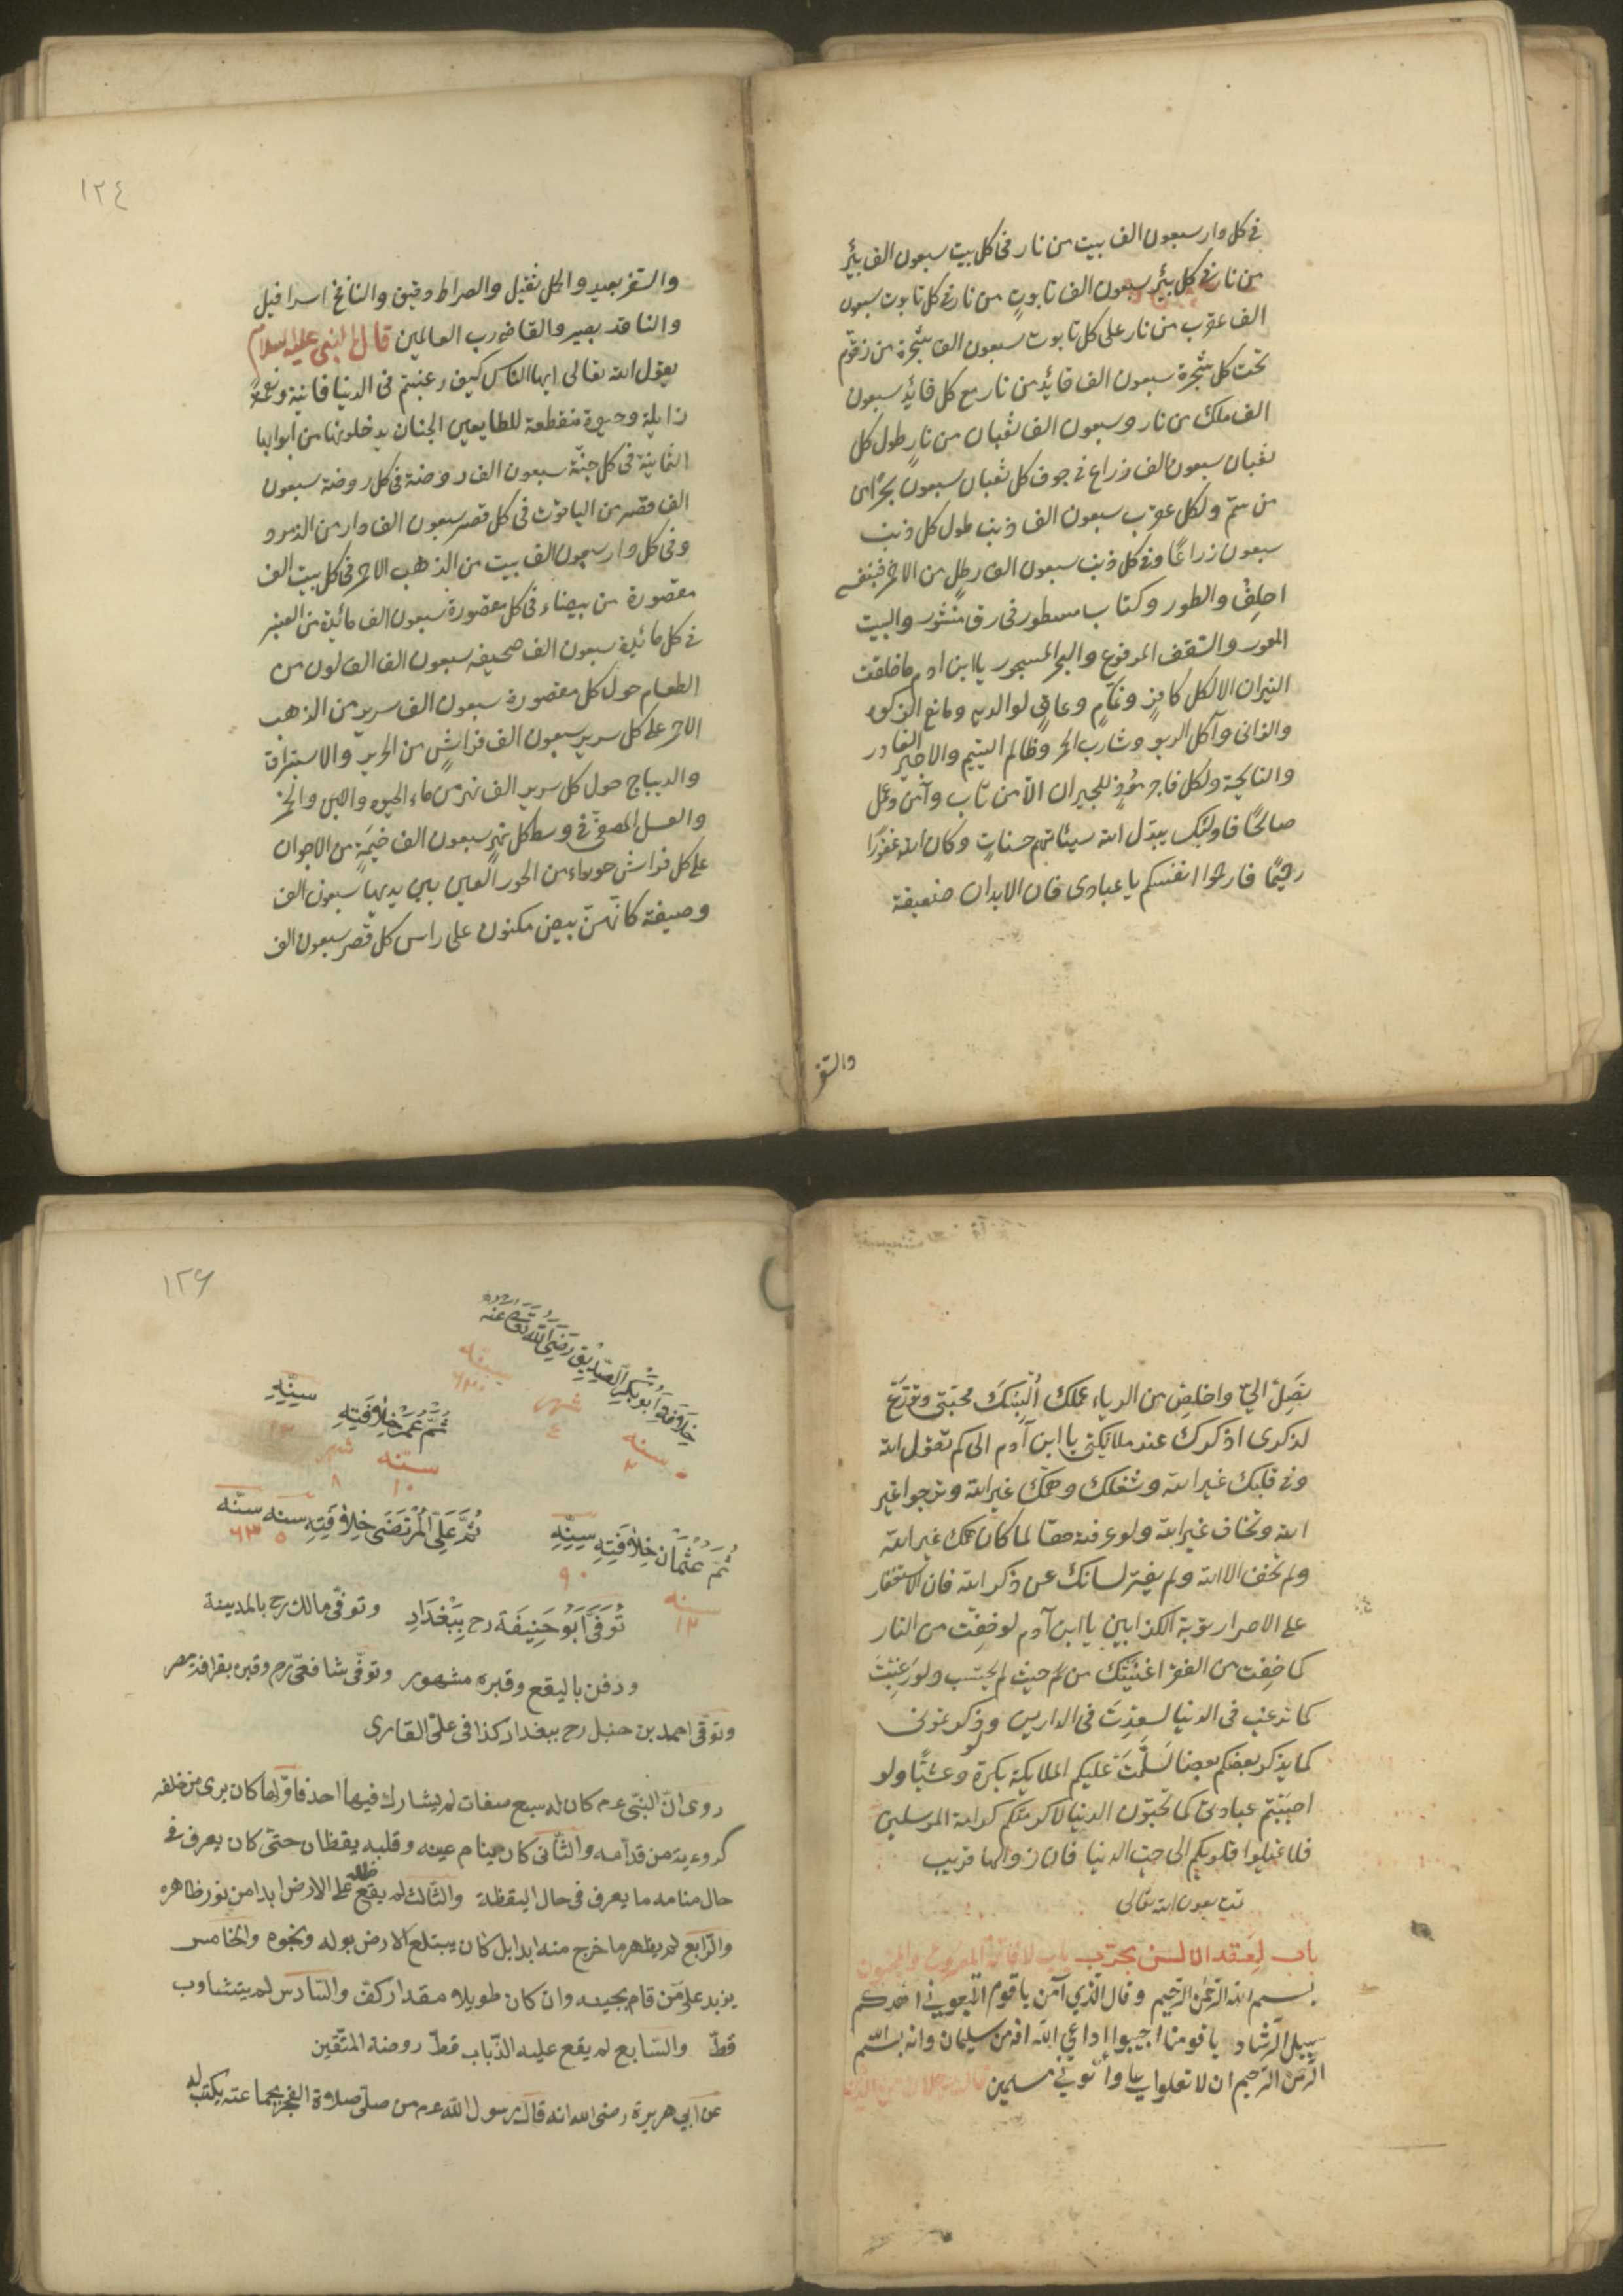 في كل دار سبعون الف بيت من نار في كل بيت سبعون الف بئر
من نار في كل بئر سبعون الف تابوت من نار في كل تابوت سبعون
الف عقرب من نار على كل تابوت سبعون الف شجرة من زقوم
تحت كل شجرة سبعون الف قائد من نار مع كل قائد سبعون
الف ملك من نار وسبعون الف ثعبان من نار طول كل
ثعبان سبعون الف ذراع في جوف كل ثعبان سبعون بحرا من
من سم ولكل عقرب سبعون الف ذنب طول كل ذنب
سبعون ذراعًا وفي كل ذنب سبعون الف رطل من الاحمر فبنفسي
احلف والطور وكتاب مسطور في رق منشور والبيت
المعمور والسقف المرفوع والبحر المسجور يا ابن ادم ما خلقت
النيران الا لكل كافر ونمام وعاق لوالديه ومانع الزكوة
والزاني وآكل الربو وشارب الخمر وظالم اليتيم والاجير الغادر
والنايحة ولكل فاجر مؤذ للجيران الا من تاب وآمن وعمل
صالحًا فاولئك يبدل الله سيئاتهم حسنات وكان الله غفورًا
رحيمًا فارحموا انفسكم يا عبادى فان الابدان ضعيفة
والسفر
١٢٤
والسفر بعيد والحمل ثقيل والصراط دقيق والنافخ اسرافيل
والناقد بصير والقاضي رب العالمين قال النبي عليه السلام
يقول الله تعالى ايها الناس كيف رغبتم في الدنيا فانية ونعمة
زايلة وحيوة منقطعة للطايعين الجنان يدخلونها من ابوابها
الثمانية في كل جنة سبعون الف روضة في كل روضة سبعون
الف قصر من الياقوت في كل قصر سبعون الف دار من الزمرد
وفي كل دار سبعون الف بيت من الذهب الاحمر في كل بيت الف
مقصورة من بيضاء في كل مقصورة سبعون الف مائدة من العنبر
في كل مائدة سبعون الف صحيفه سبعون الف الف لون من
الطعام حول كل مقصورة سبعون الف سرير من الذهب
الاحمر على كل سرير سبعون الف فراش من الحرير والاستبراق
والديباج حول كل سرير الف نهر من ماء الحيوة واللبن والخمر
والعسل المصفى في وسط كل نهر سبعون الف خيمة من الاجوان
على كل فراش حوراء من الحور العين بين يديها سبعون الف
وصيفة كانهن بيض مكنون على راس كل قصر سبعون الف
تصل الي واخلص من الرياء عملك ألبسك محبتي وتفرغ
لذكرى اذكرك عند ملائكتي يا ابن آدم الى كم تقول الله
وفي قلبك غير الله وشغلك وهمك غير الله وترجوا غير
الله وتخاف غير الله ولو عرفت حقا لما كان همك غير الله
ولم تخف الا الله ولم يفتر لسانك عن ذكر الله فان الاستغفار
على الاصرار توبة الكذابين يا ابن آدم لو خفت من النار
كما خفت من الفقر اغنيتك من حيث لم تحتسب ولو رغبت
كما ترغب في الدنيا لسعدت في الدارين ولو ذكرتموني
كما يذكر بعضكم بعضا لسلمت عليكم الملايكة بكرة وعشيًا ولو
احببتم عبادتى كما تحبون الدنيا لاكرمتكم كرامة المرسلين
فلا تميلوا قلوبكم الى حب الدنيا فان زوالها قريب
تمت بعون الله تعالى
باب لعقد الالسن مجرب
بسم الله الرحمن الرحيم وقال الذي آمن يا قوم اتبعوني اهدكم
سبيل الرشاد يا قومنا اجيبوا داعي الله انه من سليمان وانه بسم الله
الرحمن الرحيم ان لا تعلوا علي وأتوني مسلمين
١٢٦
خلافة ابو بكر الصديق رضي الله تعالى عنه
سنه ٢ شهر ٤
ثم عمر خلافته سينه
سنه ١٠ شهر ٨
ثم عثمان خلافته سينه
٩٠
سنه ١٢
ثم علي المرتضى خلافته سنه سنه
٥ ٦٣
توفى ابو حنيفة رح ببغداد وتوفى مالك رح بالمدينة
ودفن باليقع وقبره مشهور وتوفى شافعى رح وقبره بقرافه مصر
وتوفى احمد بن حنبل رح ببغداد كذا في على القارى
روى ان النبى عم كان له سبع صفات لم يشارك فيها احد فاولها كان يرى من خلفه
كرؤيته من قدامه والثانى كان ينام عينه وقلبه يقظان حتى كان يعرف في
حال منامه ما يعرف في حال اليقظة والثالث لم يقع ظله على الارض ابدا من نور ظاهره
والرابع لم يظهر ما خرج منه ابدا بل كان يبتلع الارض بوله ونجوه والخامس
يزيد على من قام بجنبه وان كان طويلا مقدار كف والسادس لم يتثاوب
قط والسابع لم يقع عليه الذباب قط روضة المتقين
عن ابي هريرة رضى الله انه قال رسول الله عم من صلى صلاة الفجر بجماعته يكتب له